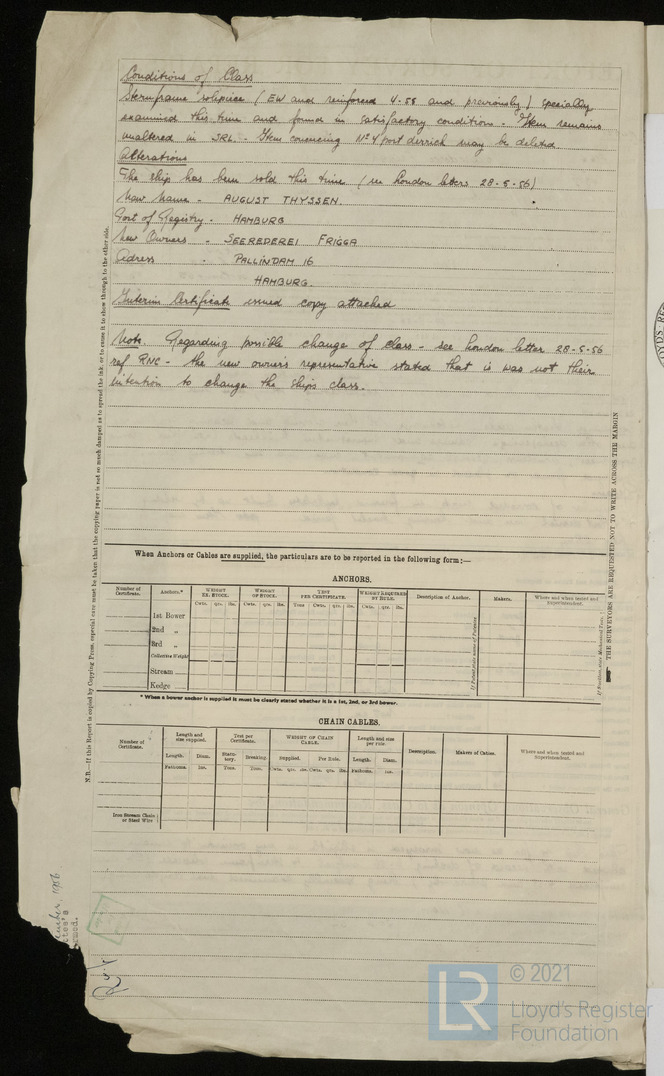 Conditions of Class
Sternframe solepiece (EW and reinforced 4-55 and previously) specially
examined this time and found in satisfactory condition. - Item remains
unaltered in SRL. - Item concerning No 4 port derrick may be deleted
Alterations
The ship has been sold this time (see London letters 28-5-56)
New Name - AUGUST THYSSEN.
Port of Registry - HAMBURG
New Owners - SEEREDEREI FRIGGA
Adress - PALLINDAM 16
HAMBURG.
Interim Certificate issued copy attached
Note. Regarding possible change of class - see London letter 28-5-56
ref RNC - the new owner's representative stated that is was not their
intention to change the ships class.
When Anchors or Cables are supplied, the particulars are to be reported in the following form:—
ANCHORS.
Number of Certificate. Anchors.* WEIGHT EX. STOCK. WEIGHT OF STOCK. TEST PER CERTIFICATE. WEIGHT REQUIRED BY RULE. Description of Anchor. Makers. Where and when tested and Superintendent.
Cwts. qrs. lbs. Cwts. qrs. lbs. Tons Cwts. qrs. lbs. Cwts. qrs. lbs.
1st Bower
2nd „
3rd „
Collective Weight
Stream
Kedge
* When a bower anchor is supplied it must be clearly stated whether it is a 1st, 2nd, or 3rd bower.
CHAIN CABLES.
Number of Certificate. Length and size supplied. Test per Certificate. WEIGHT OF CHAIN CABLE. Length and size per rule. Description. Makers of Cables. Where and when tested and Superintendent.
Length. Diam. Statutory. Breaking Supplied. Per Rule. Length. Diam.
Fathoms. Ins. Tons. Tons. Cwts. qrs. lbs. Cwts. qrs. lbs. Fathoms. Ins.
Iron Stream Chain or Steel Wire
N.B.—If this Report is copied by Copying Press, especial care must be taken that the copying paper is not so much damped as to spread the ink or to cause it to show through to the other side.
THE SURVEYORS ARE REQUESTED NOT TO WRITE ACROSS THE MARGIN
LR
© 2021
Lloyd's Register
Foundation